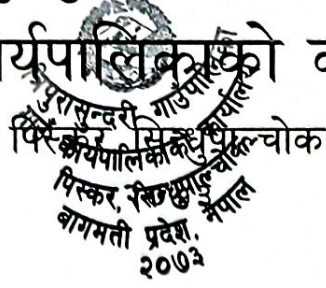 र्यपालिकाको
पिस्कर, सिन्धुपाल्चोक
त्रिपुरासुन्दरी गाउँपालिका
कार्यपालिकाको कार्यालय
पिस्कर, सिन्धुपाल्चोक
बागमती प्रदेश, नेपाल
२०७३